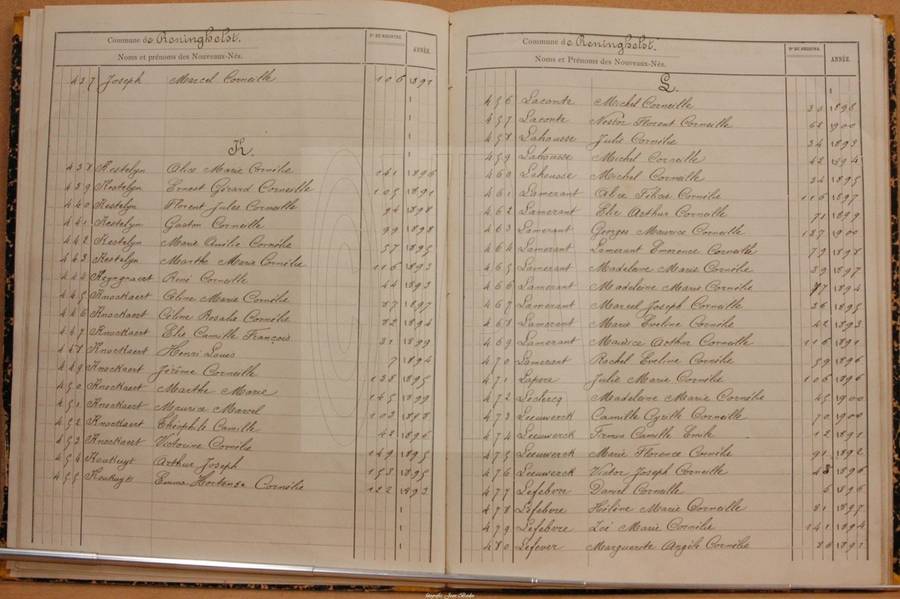 Commune de Reninghelst.
Noms et prénoms des Nouveaux-Nés.
N° DE REGISTRE.
ANNÉE.
437 Joseph Marcel Corneille 106 1891
K.
438 Kestelyn Alice Marie Cornélie 141 1896
439 Kestelyn Ernest Gérard Corneille 105 1891
440 Kestelyn Florent Jules Corneille 94 1898
441 Kestelyn Gaston Corneille 99 1898
442 Kestelyn Marie Amélie Cornélie 57 1895
443 Kestelyn Marthe Marie Cornélie 116 1893
444 Keyngnaert René Corneille 44 1893
445 Knockaert Céline Marie Cornélie 87 1897
446 Knockaert Céline Rosalie Cornélie 82 1894
447 Knockaert Elie Camille François 31 1899
448 Knockaert Henri Louis 7 1894
449 Knockaert Jérôme Corneille 138 1895
450 Knockaert Marthe Marie 145 1899
451 Knockaert Maurice Marcel 103 1898
452 Knockaert Théophile Camille 42 1896
453 Knockaert Victorine Cornélie 149 1895
454 Arthur Joseph 153 1895
455 Emma Hortense Cornélie 122 1893
Commune de Reninghelst.
Noms et Prénoms des Nouveaux-Nés.
N° DE REGISTRE.
ANNÉE.
L.
456 Laconte Michel Corneille 1895
457 Laconte Nestor Florent Corneille 68 1900
458 Lahousse Julie Cornélie 34 1893
459 Lahousse Michel Corneille 42 1894
460 Lahousse Michel Corneille 34 1895
461 Lamerant Alice Cornélie 116 1897
462 Lamerant Elie Arthur Corneille 71 1899
463 Lamerant Georges Maurice Corneille 137 1900
464 Lamerant Lamerant Emerence Corneille 79 1898
465 Lamerant Madeleine Marie Cornélie 39 1897
466 Lamerant Madeleine Marie Cornélie 1894
467 Lamerant Marcel Joseph Corneille 36 1895
468 Lamerant Marie Eveline Cornélie 42 1893
469 Lamerant Maurice Arthur Corneille 116 1891
470 Lamerant Rachel Eveline Cornélie 59 1896
471 Lapere Julie Marie Cornélie 106 1896
472 Leclercq Madeleine Marie Cornélie 45 1900
473 Leeuwerck Camille Cyrille Corneille 70 1900
474 Leeuwerck Firmin Camille Emile 12 1891
475 Leeuwerck Marie Florence Cornélie 91 1892
476 Leeuwerck Victor Joseph Corneille 1896
477 Lefebvre Daniel Corneille 6 1896
478 Lefebvre Hélène Marie Corneille 81 1897
479 Lefebvre Zoé Marie Cornélie 141 1894
480 Lefever Marguerite Cornélie 86 1892